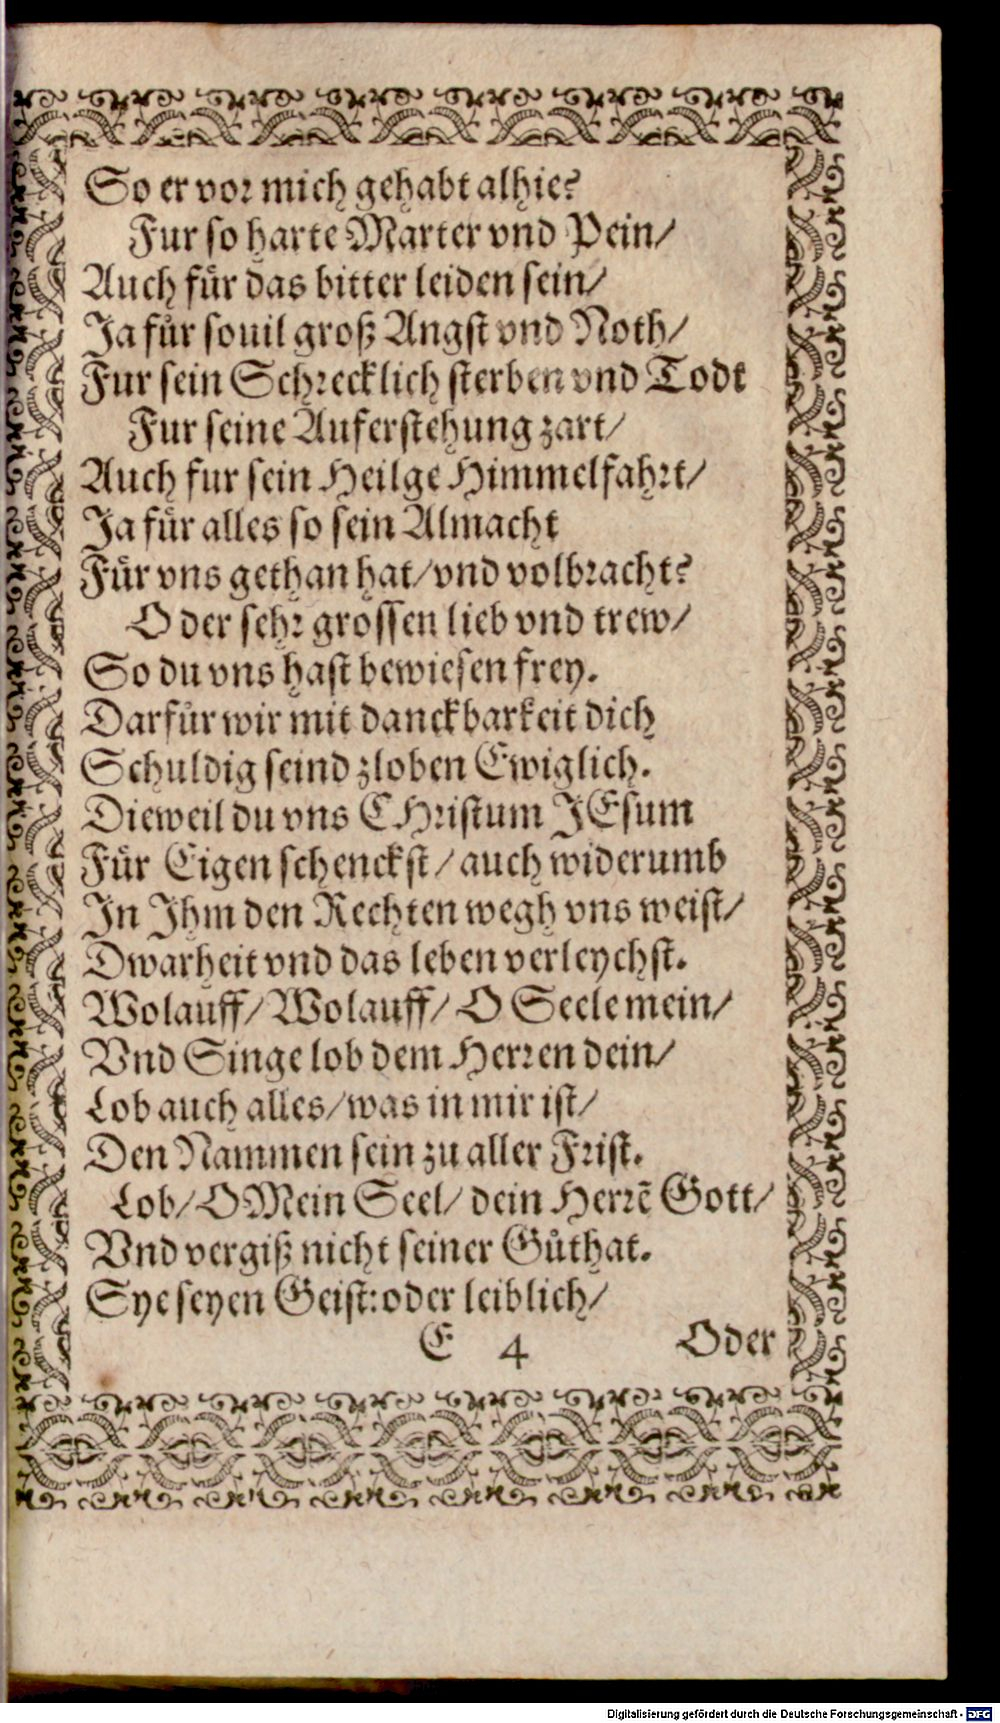 So er vor mich gehabt alhie?
Fur so harte Marter vnd Pein/
Auch fuͤr das bitter leiden sein/
Ja fuͤr souil groß Angst vnd Noth/
Fur sein Schrecklich sterben vnd Todt
Fur seine Auferstehung zart/
Auch fur sein Heilge Himmelfahrt/
Ja fuͤr alles so sein Almacht
Fuͤr vns gethan hat/ vnd volbracht?
O der sehr grossen lieb vnd trew/
So du vns hast bewiesen frey.
Darfuͤr wir mit danckbarkeit dich
Schuldig seind zloben Ewiglich.
Dieweil du vns CHristum JEsum
Fuͤr Eigen schenckst/ auch widerumb
In Ihm den Rechten wegh vns weist/
Dwarheit vnd das leben verleychst.
Wolauff/ Wolauff/ O Seele mein/
Vnd Singe lob dem Herren dein/
Lob auch alles/ was in mir ist/
Den Nammen sein zu aller Frist.
Lob/ O Mein Seel/ dein Herrē Gott/
Vnd vergiß nicht seiner Guͦthat.
Sye seyen Geist: oder leiblich/
E 4 Oder
Digitalisierung gefördert durch die Deutsche Forschungsgemeinschaft - DFG